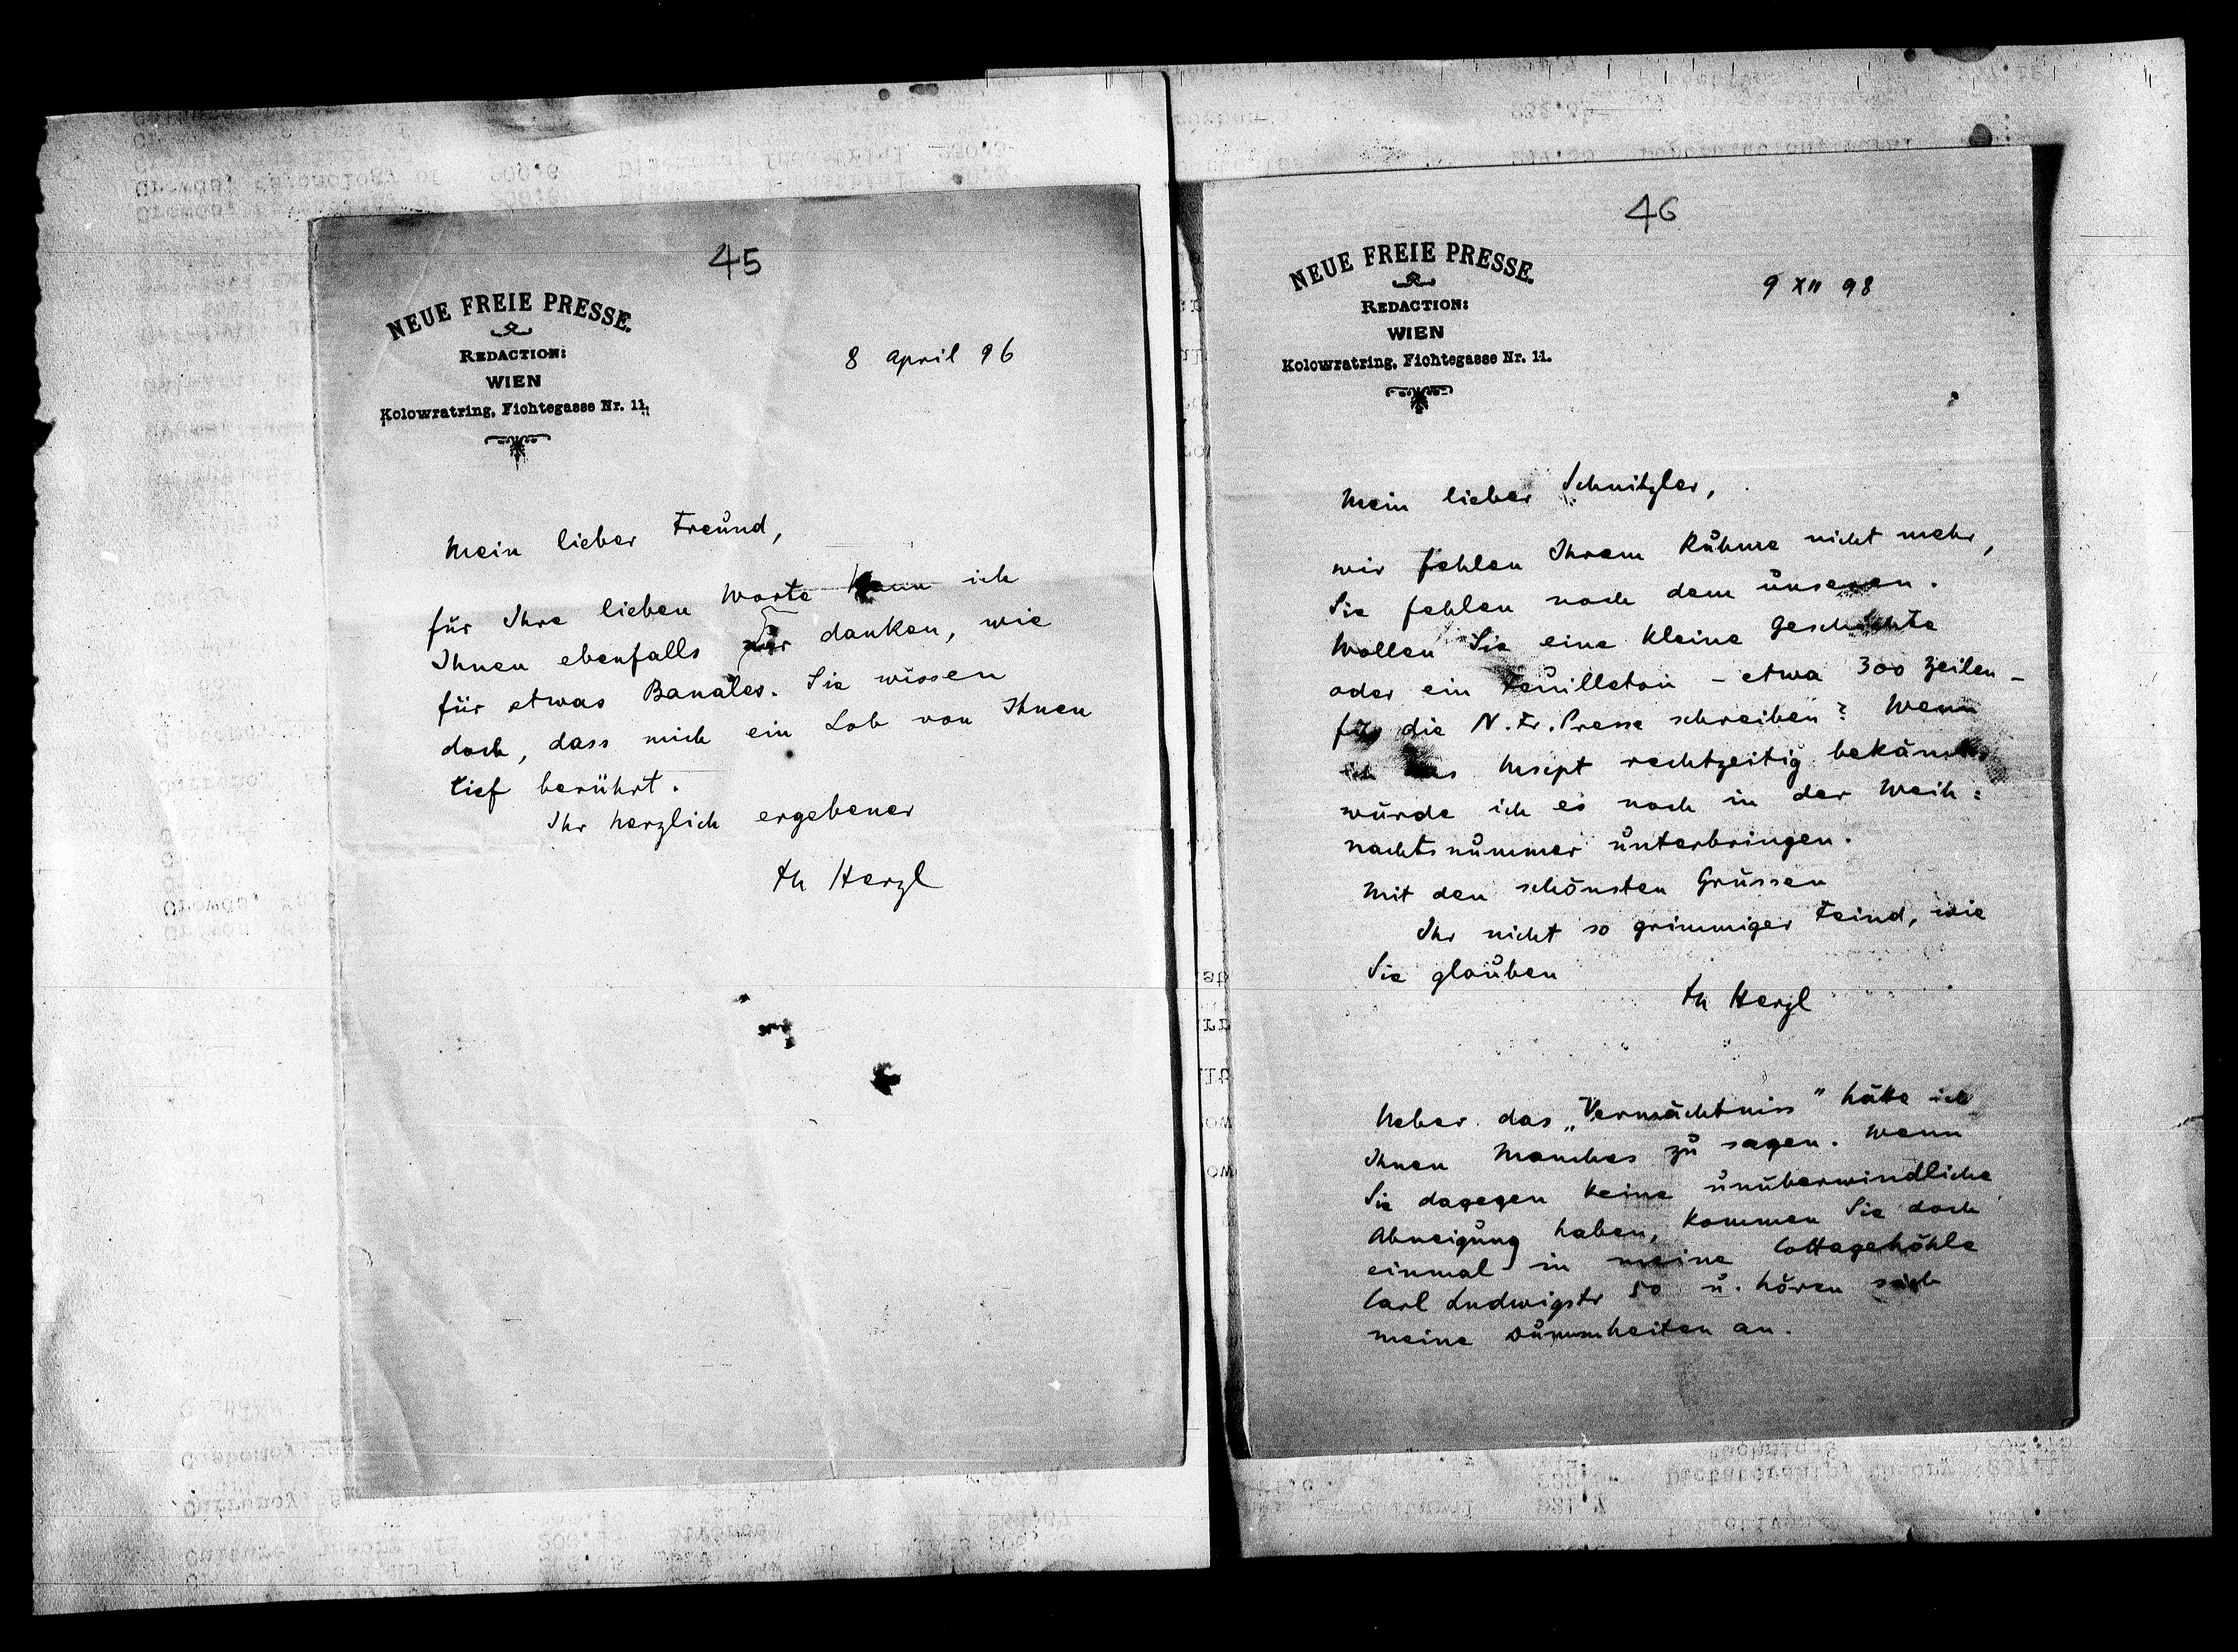 45
NEUE FREIE PRESSE.
REDACTION:
WIEN
Kolowratring, Fichtegasse Nr. 11.
8 April 96
Mein lieber Freund,
für Ihre lieben Worte kann ich
Ihnen ebenfalls nur danken, wie
für etwas Banales. Sie wissen
doch, dass mich ein Lob von Ihnen
tief berührt.
Ihr herzlich ergebener
Th Herzl
46
NEUE FREIE PRESSE.
REDACTION:
WIEN
Kolowratring, Fichtegasse Nr. 11.
9 XII 98
Mein lieber Schnitzler,
wir fehlen Ihrem Ruhme nicht mehr,
Sie fehlen noch dem unseren.
Wollen Sie eine kleine Geschichte
oder ein Feuilleton – etwa 300 Zeilen –
für die N. Fr. Presse schreiben? Wenn
ich das Mscpt rechtzeitig bekäme
würde ich es noch in der Weih:
nachtsnummer unterbringen.
Mit den schönsten Grüssen
Ihr nicht so grimmiger Feind, wie
Sie glauben
Th Herzl
Ueber das „Vermächtniss" hätte ich
Ihnen Manches zu sagen. Wenn
Sie dagegen keine unüberwindliche
Abneigung haben, kommen Sie doch
einmal in meine Cottagehöhle
Carl Ludwigstr 50 u. hören sich
meine Dummheiten an.